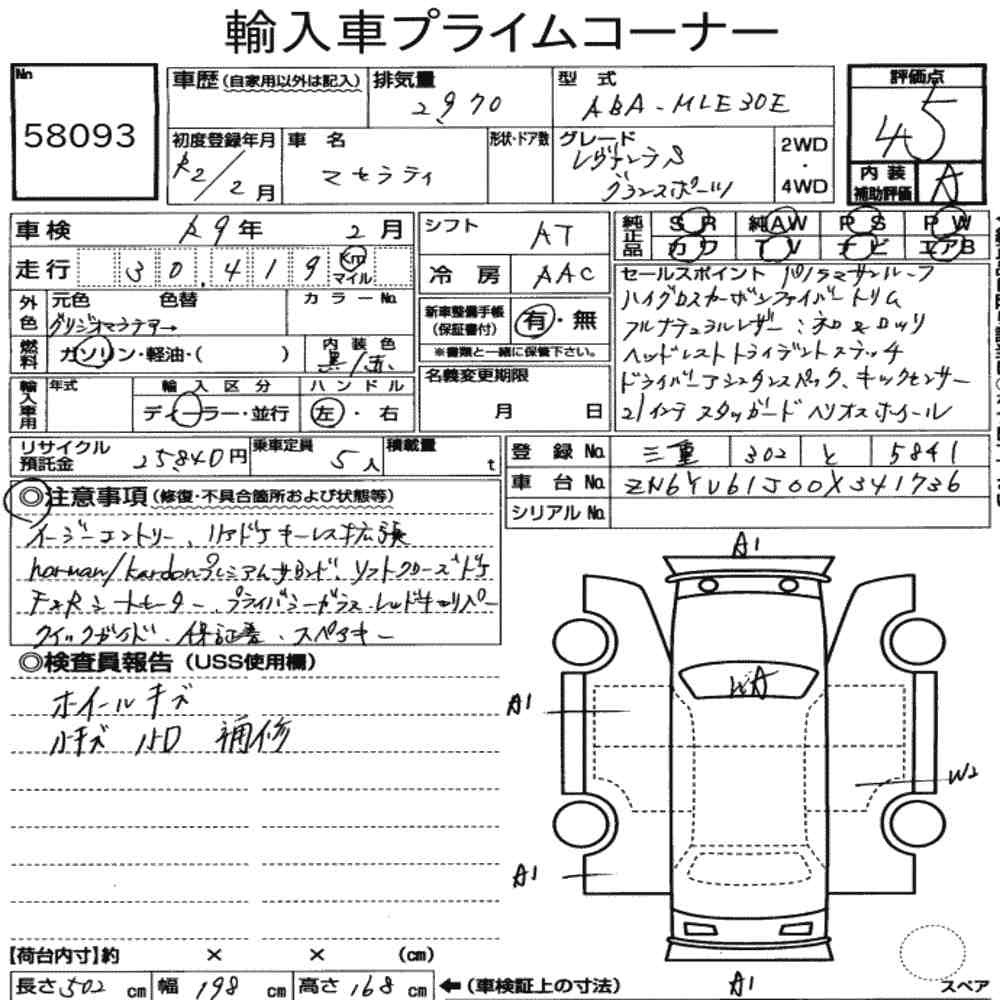 輸入車プライムコーナー
No
58093
車歴 (自家用以外は記入)
排気量
2970
型 式
ABA-MLE30E
評価点
4.5
初度登録年月
R2/2月
車 名
マセラティ
形状・ドア数
グレード
レヴァンテS
グランスポーツ
2WD
・
4WD
内 装
補助評価
A
車検
R9年 2月
シフト
AT
純正品
SR 純AW PS PW
カワ TV ナビ エアB
走行
30,419 km
マイル
冷 房
AAC
セールスポイント パノラマサンルーフ
ハイグロスカーボンファイバートリム
フルナチュラルレザー:ネロ&ロッソ
ヘッドレストトライデントステッチ
ドライバーアシスタンスパック、キックセンサー
21インチ スタッガード ヘリオスホイール
外色
元色 色替
グリジオマラテアー
カラーNo.
新車整備手帳
(保証書付)
有・無
※書類と一緒に保管下さい。
燃料
ガソリン・軽油・( )
内 装 色
黒/赤
名義変更期限
月 日
輸入車用
年式
輸 入 区 分
ディーラー・並行
ハ ン ド ル
左・右
リサイクル
預託金
25840円
乗車定員
5人
積載量
t
登 録 No.
三重 302 と 5841
車 台 No.
ZN6YU61J00X341736
シリアルNo.
◎注意事項 (修復・不具合箇所および状態等)
イージーエントリー、リアドアキーレス拡張
harman/kardonプレミアムサウンド、ソフトクローズドア
F&Rシートヒーター、プライバシーガラス、レッドキャリパー
クイックガイド、保証書、スペアキー
◎検査員報告 (USS使用欄)
ホイールキズ
補修
A1
WA
A1
W2
A1
A1
【荷台内寸】約 × × (cm)
長さ 502 cm 幅 198 cm 高さ 168 cm
←(車検証上の寸法)
スペア